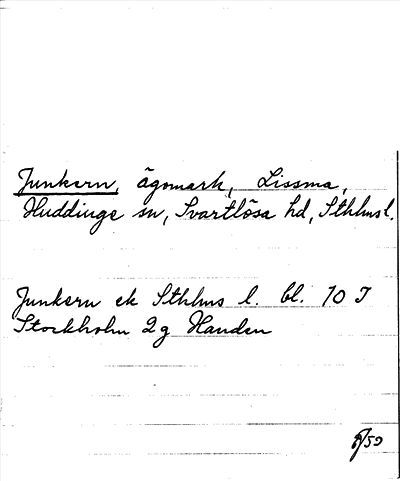 Junkern, ägomark, Lissma,
Huddinge sn, Svartlösa hd, Sthlmsl.
Junkern ek Sthlms l. bl. 70 I
Stockholm 2g Handen